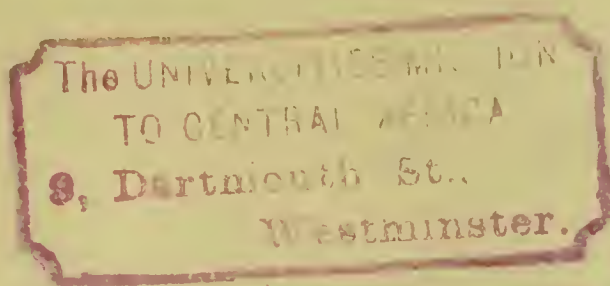 The UNIVERSITIES MISSION
TO CENTRAL AFRICA
9, Dartmouth St.,
Westminster.